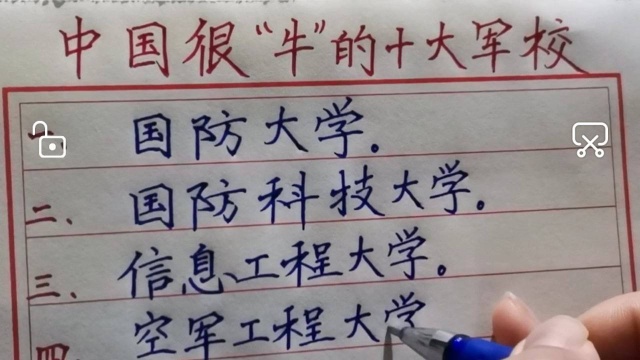 中国很“牛”的十大军校
一、国防大学。
二、国防科技大学。
三、信息工程大学。
四、空军工程大学